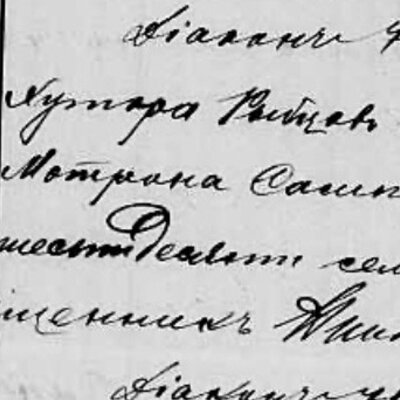 Діаконъ
Хутора Рыбцовъ
Мотрона Самп
шестидесяти сем
щенникъ
Діаконъ